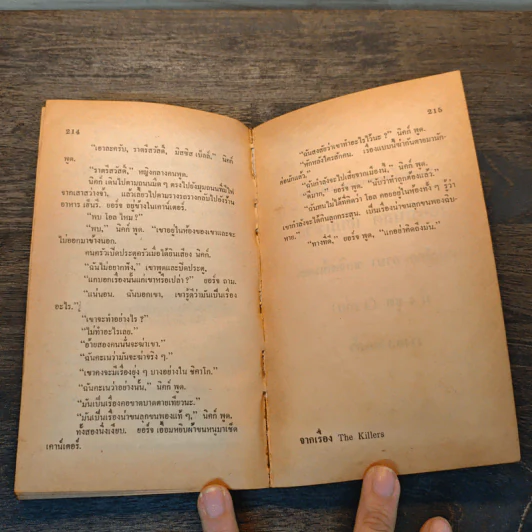 214
"เอาละครับ, ราตรีสวัสดิ์, มิสซิส เบ็ลล์," นิคก์
พูด.
"ราตรีสวัสดิ์," หญิงกลางคนพูด.
นิคก์ เดินไปตามถนนมืด ๆ ตรงไปยังมุมถนนที่มีไฟ
จากเสาสว่างจ้า, แล้วเลี้ยวไปตามรางรถรางกลับไปยังร้าน
อาหาร เฮ็นรี่. ยอร์จ อยู่ข้างในเคาน์เตอร์.
"พบ โอล ไหม?"
"พบ," นิคก์ พูด. "เขาอยู่ในห้องของเขาและจะ
ไม่ออกมาข้างนอก.
คนครัวเปิดประตูครัวเมื่อได้ยินเสียง นิคก์.
"ฉันไม่อยากฟัง," เขาพูดและปิดประตู.
"แกบอกเรื่องนั้นแก่เขาหรือเปล่า?" ยอร์จ ถาม.
"แน่นอน. ฉันบอกเขา, เขารู้ดีว่ามันเป็นเรื่อง
อะไร."
"เขาจะทำอย่างไร?"
"ไม่ทำอะไรเลย."
"อ้ายสองคนนั้นจะฆ่าเขา."
"ฉันคะเนว่ามันจะฆ่าจริง ๆ."
"เขาคงจะมีเรื่องยุ่ง ๆ บางอย่างใน ชิคาโก."
"ฉันคะเนว่าอย่างนั้น," นิคก์ พูด.
"มันเป็นเรื่องคอขาดบาดตายเทียวนะ."
"มันเป็นเรื่องน่าขนลุกขนพองแท้ ๆ," นิคก์ พูด.
ทั้งสองนิ่งเงียบ. ยอร์จ เอื้อมหยิบผ้าขนหนูมาเช็ด
เคาน์เตอร์.
215
"ฉันสงสัยว่าเขาทำอะไรไว้นะ?" นิคก์ พูด.
"หักหลังใครสักคน. เรื่องแบบนี้ฆ่ากันตายมานัก-
ต่อนักแล้ว."
"ฉันกำลังจะไปเสียจากเมืองนี้," นิคก์ พูด.
"ดีมาก," ยอร์จ พูด, "นับว่าทำถูกต้องแล้ว."
"ฉันทนไม่ได้ที่คิดว่า โอล คอยอยู่ในห้องทั้ง ๆ รู้ว่า
เขากำลังจะได้กินลูกกระสุน. เป็นเรื่องน่าขนลุกขนพองฉิบ-
หาย."
"ทางที่ดี," ยอร์จ พูด, "แกอย่าคิดถึงมัน."
จากเรื่อง The Killers